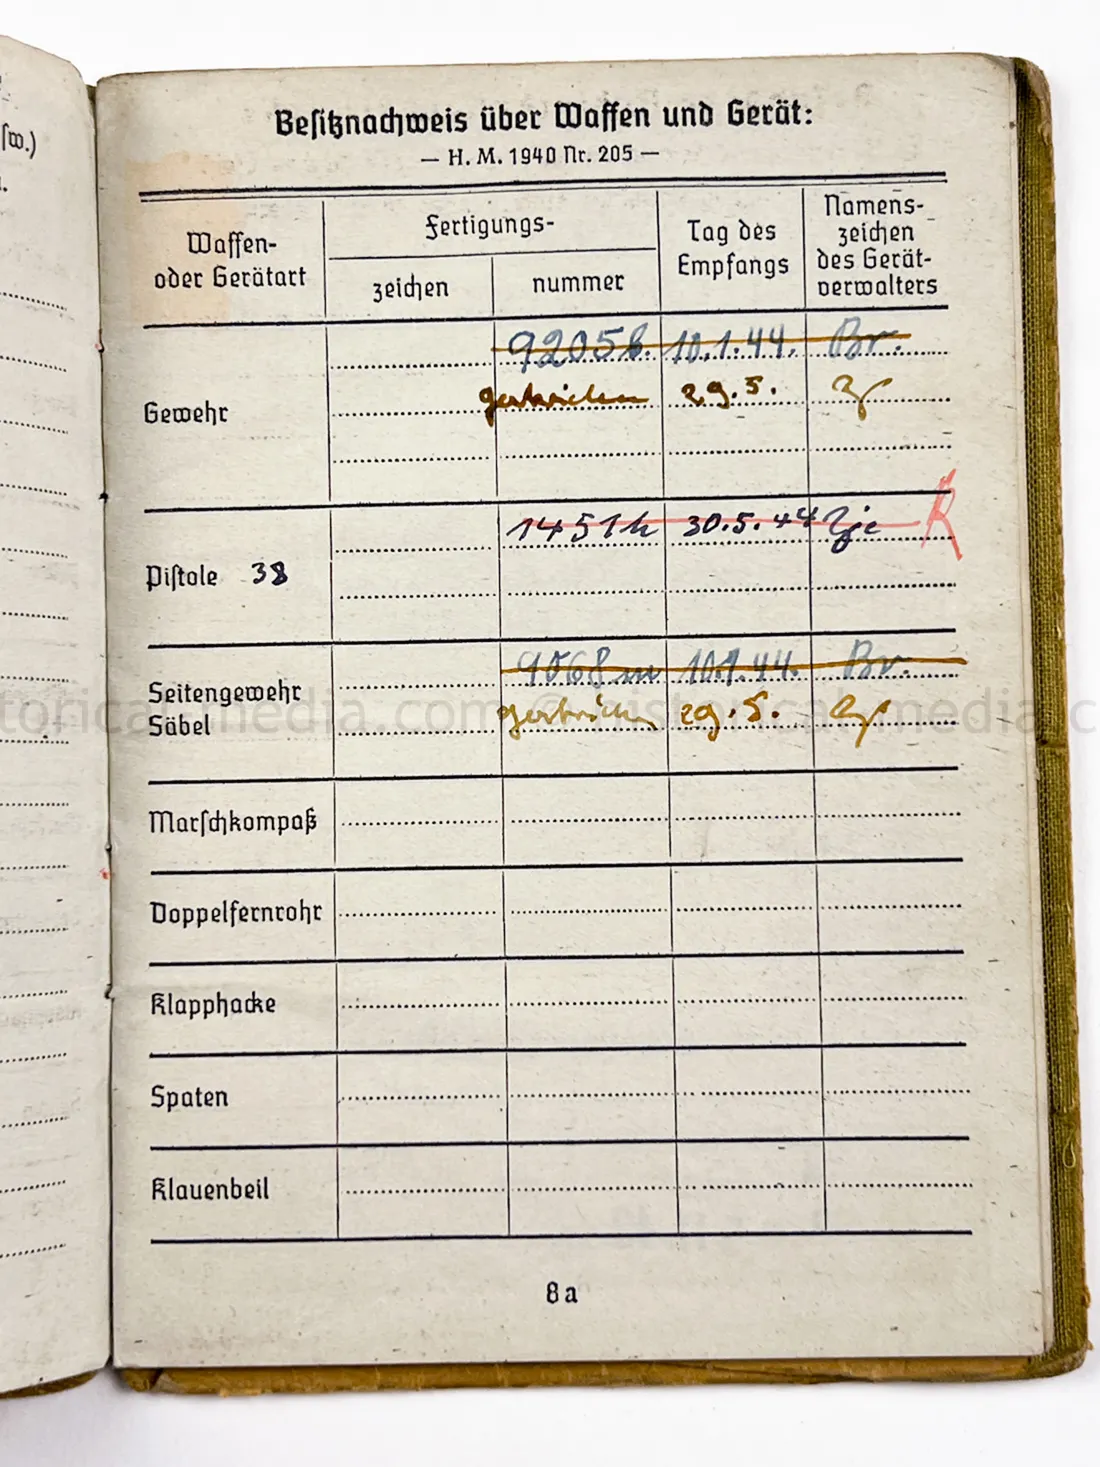 ſw.)
Beſitznachweis über Waffen und Gerät:
— H. M. 1940 Nr. 205 —
Waffen-
oder Gerätart
Fertigungs-
zeichen
nummer
Tag des
Empfangs
Namens-
zeichen
des Gerät-
verwalters
Gewehr
9205 10.1.44. Br.
29.5.
Piſtole 38
1451h 30.5.44
R
Seitengewehr
Säbel
9068m 10.1.44. Br.
gestrichen 29.5.
Marſchkompaß
Doppelfernrohr
Klapphacke
Spaten
Klauenbeil
8a